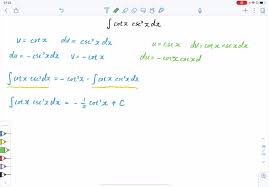 ∫ cotx csc²x dx
u = cotx dv = csc²x dx
du = -csc²x dx v = -cotx
u = cscx dv = cotx cscx dx
du = -cotx cscx d
∫ cotx csc²x dx = -cot²x - ∫ cotx csc²x dx
∫ cotx csc²x dx = -½ cot²x + C